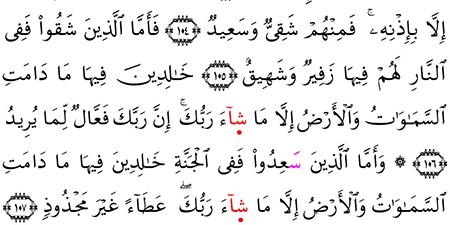 إِلَّا بِإِذْنِهِۦۚ فَمِنْهُمْ شَقِىٌّ وَسَعِيدٌ ﴿١٠٤﴾ فَأَمَّا ٱلَّذِينَ شَقُوا۟ فَفِى
ٱلنَّارِ لَهُمْ فِيهَا زَفِيرٌ وَشَهِيقٌ ﴿١٠٥﴾ خَٰلِدِينَ فِيهَا مَا دَامَتِ
ٱلسَّمَٰوَٰتُ وَٱلْأَرْضُ إِلَّا مَا شٜآءَ رَبُّكَۚ إِنَّ رَبَّكَ فَعَّالٌ لِّمَا يُرِيدُ
﴿١٠٦﴾ ۞ وَأَمَّا ٱلَّذِينَ سَعِدُوا۟ فَفِى ٱلْجَنَّةِ خَٰلِدِينَ فِيهَا مَا دَامَتِ
ٱلسَّمَٰوَٰتُ وَٱلْأَرْضُ إِلَّا مَا شٜآءَ رَبُّكَۖ عَطَآءً غَيْرَ مَجْذُوذٍ ﴿١٠٧﴾